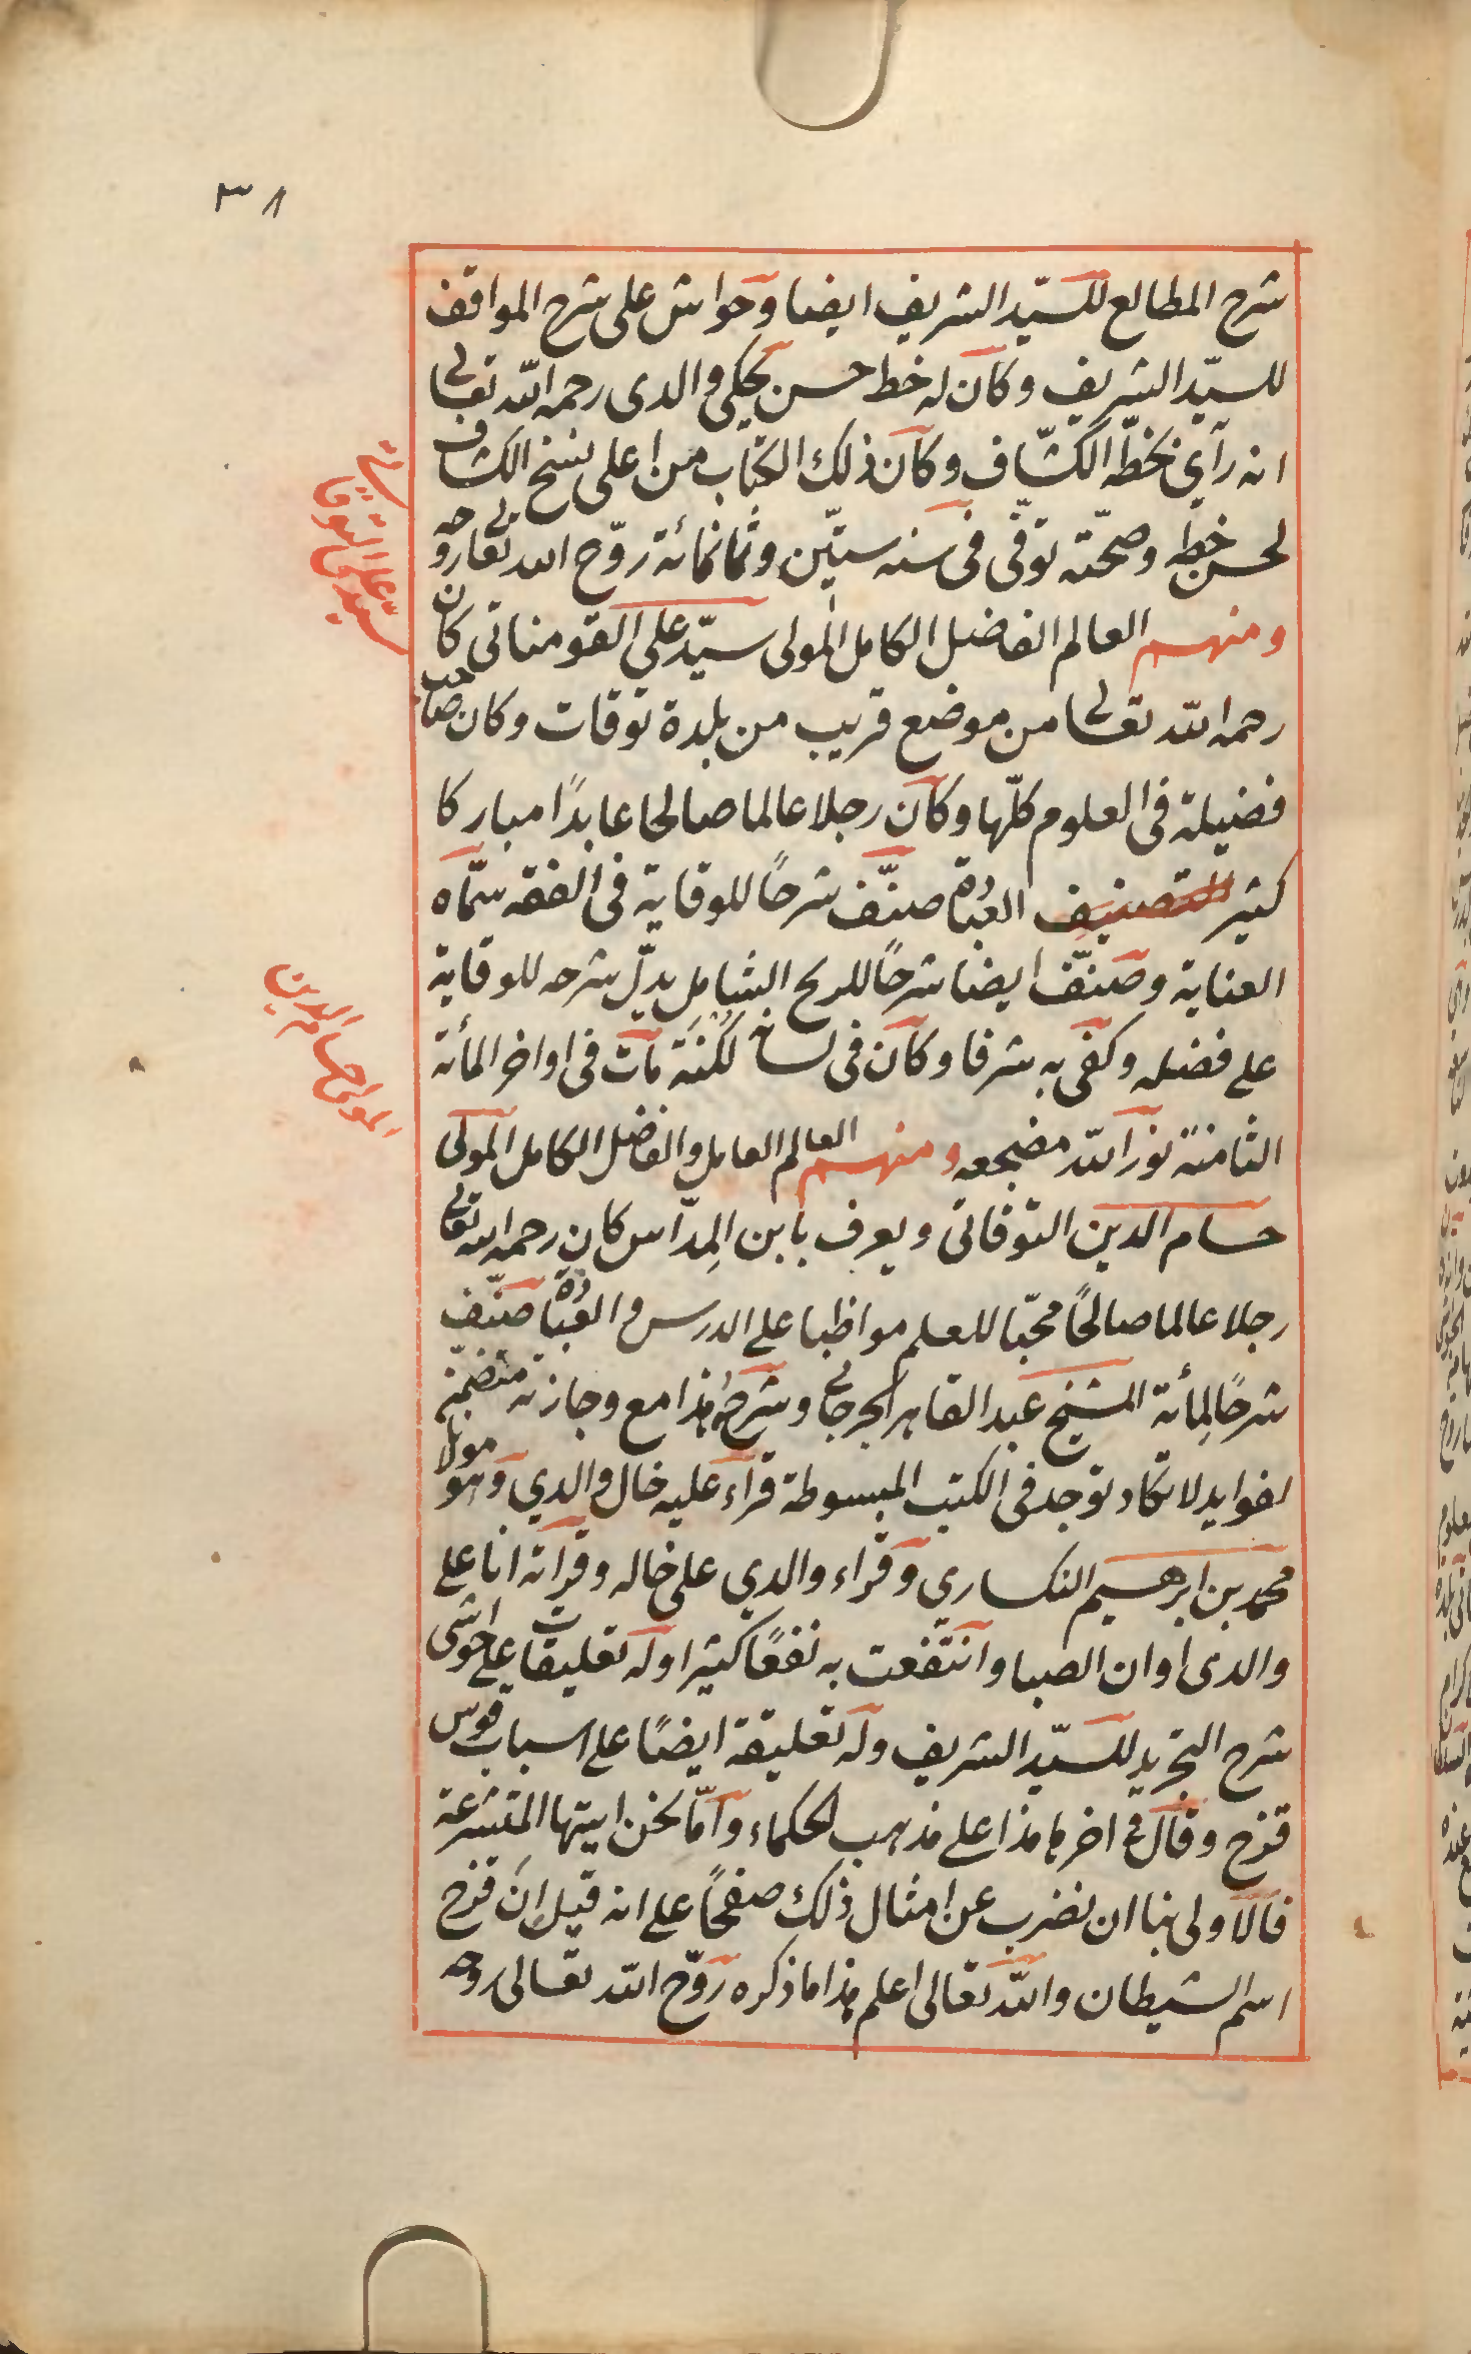 ٣٨
شرح المطالع للسيّد الشريف ايضا وحواش على شرح المواقف
للسيّد الشريف وكان له خط حسن يحكى والدى رحمه الله تعالى
انه رآى بخطّه الكشّاف وكان ذلك الكتاب من اعلى نسخ الكشاف
لحسن خطه وصحّته توفّى فى سنه ستّين وثمانمائة روّح الله تعا روحه
ومنهم العالم الفاضل الكامل المولى سيّد على القومناتى كان
رحمه الله تعالى من موضع قريب من بلدة توقات وكان صاحب
فضيلة فى العلوم كلّها وكان رجلا عالما صالحا عابدًا مباركا
كثير التصنيف العبادة صنّف شرحًا للوقاية فى الفقه سمّاه
العناية وصنّف ايضا شرحًا للريح الشامل يدلّ شرحه للوقاية
على فضله وكفى به شرفا وكان فى لسانه لُكْنَة مات فى اواخر المأئة
الثامنة نوّر الله مضجعه ومنهم العالم العامل والفاضل الكامل المولى
حسام الدين التوقاتى ويعرف بابن المِدّاس كان رحمه الله تعالى
رجلا عالما صالحًا محبّا للعلم مواظبا على الدرس والعبادة صنّف
شرحًا لِمأئة الشيخ عبد القاهر الجرجانى وشرحُه هذا مع وجازته متضمّن
لفوايد لا تكاد توجد فى الكتب المبسوطة قراء عليه خال والدي وهو مولانا
محمد بن ابرهيم النكساري وقراء والدي على خاله وقرأته انا على
والدى اوان الصبا وانتفعت به نفعًا كثيرا وله تعليقات على حواشى
شرح التجريد للسيّد الشريف وله تعليقة ايضًا على اسباب قوس
قزح وقال فى اخرها هذا على مذهب الحكماء وامّا نحن ايتها المتشرعة
فالاولى بنا ان نضرب عن امثال ذلك صفحًا على انه قيل ان قزح
اسم الشيطان والله تعالى اعلم هذا ما ذكره روّح الله تعالى روحه
سيّد على التوقاتى
المولى حسام الدين